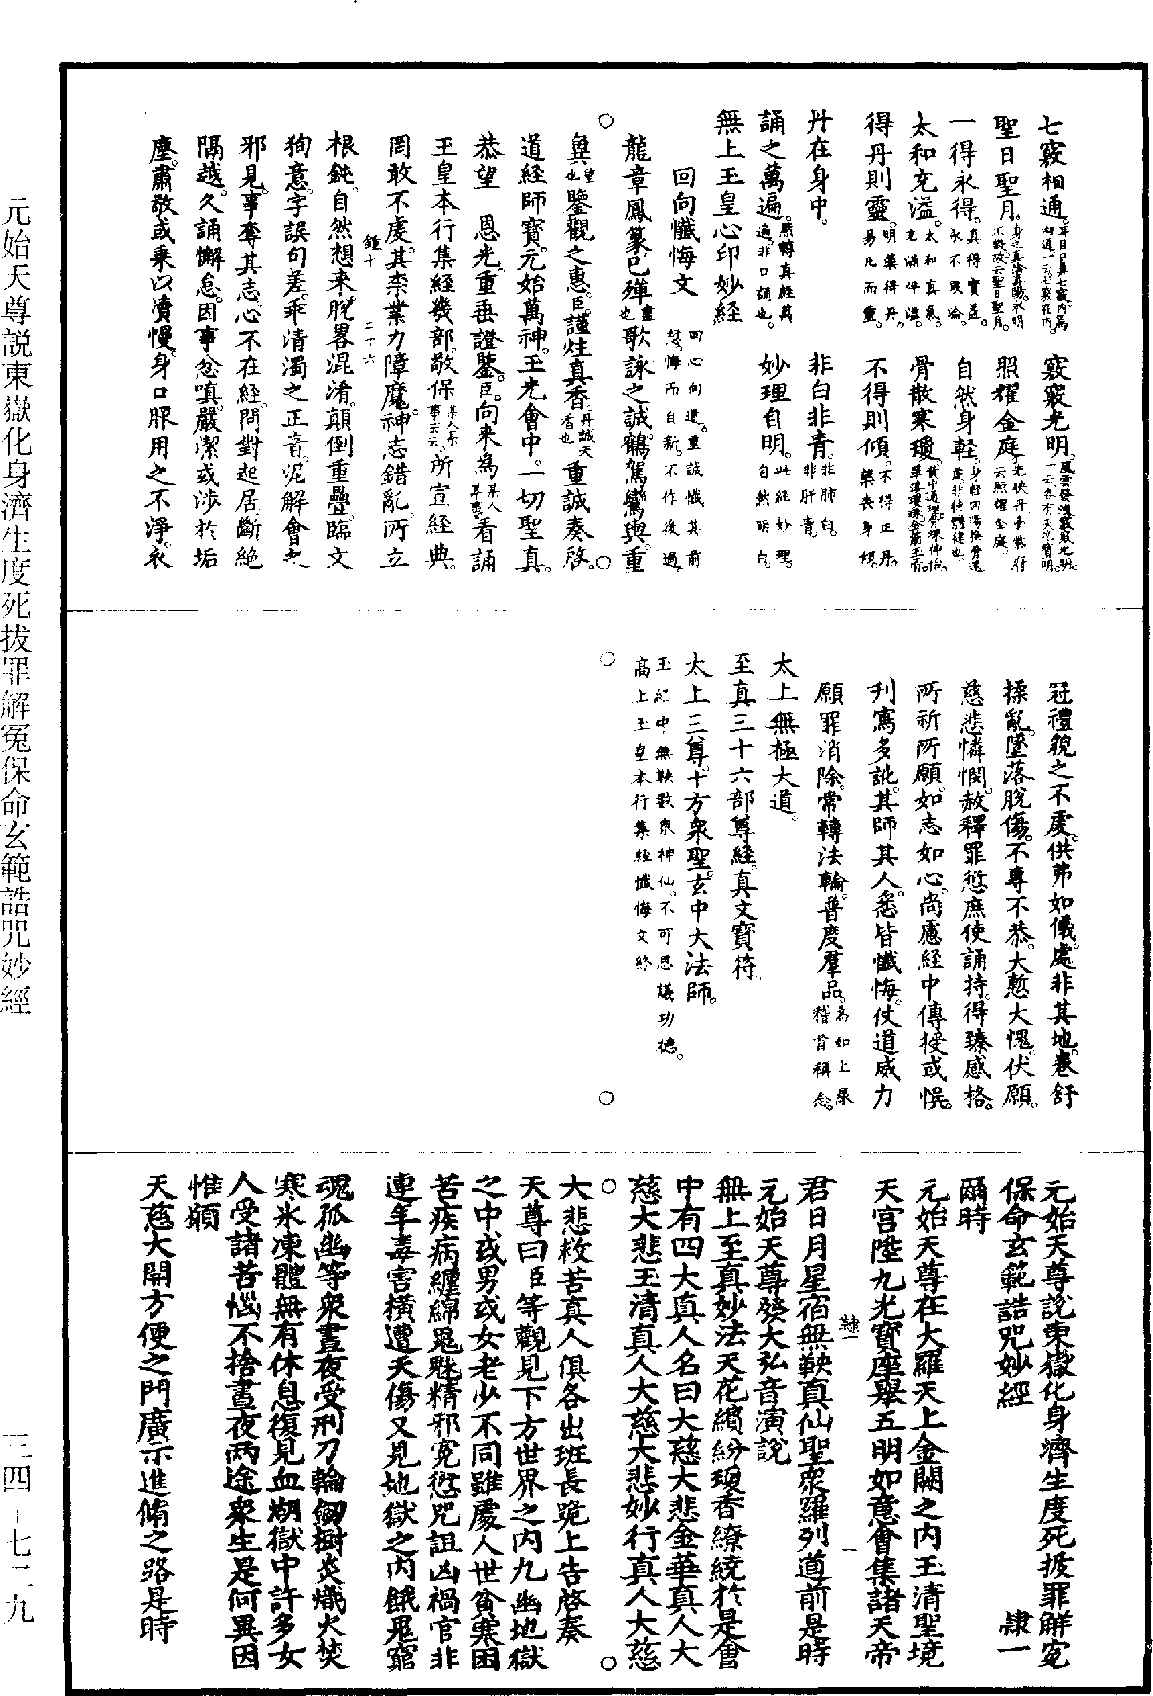 七竅相通。竅竅光明。
聖日聖月。照耀金庭。
一得永得。自然身輕。
太和充溢。骨散寒瓊。
得丹則靈。不得則傾。
丹在身中。非白非青。
誦之萬遍。妙理自明。
無上玉皇心印妙經
回向懺悔文
龍章鳳篆已殫歌詠之誠。鶴駕鸞輿。重
鑒觀之惠。臣謹炷真香。重誠奏啓。
道經師寶。元始萬神。玉光會中。一切聖真。
恭望 恩光。重垂證鑒。臣向來為某人看誦
玉皇本行集經幾部。敬保所宣經典。
罔敢不虔。其柰業力障魔。神志錯亂。所立
鍾十 二十六
根鈍。自然想來。脫畧混淆。顛倒重疊。臨文
狥意。字誤句差。乖清濁之正音。泥解會之
邪見。事奪其志。心不在經。問對起居。斷絶
隔越。久誦懈怠。因事忿嗔。嚴潔或涉於垢
塵。肅敬或乘以瀆慢。身口服用之不淨。衣
冠禮貌之不虔。供弗如儀。處非其地。卷舒
操亂。墜落脫傷。不專不恭。大慙大愧。伏願。
慈悲憐憫。赦釋罪愆。庶使誦持。得臻感格。
所祈所願。如志如心。尚慮經中傳授或悞。
刋寫多訛。其師其人。悉皆懺悔。仗道威力
願罪消除。常轉法輪。普度羣品。為如上緣稽首稱念。
太上無極大道。
至真三十六部尊經。真文寶符。
太上三尊。十方衆聖。玄中大法師。
玉經中無鞅數衆神仙。不可思議功德。
高上玉皇本行集經懺悔文終
元始天尊說東嶽化身濟生度死拔罪解寃
保命玄範誥咒妙經 隸一
爾時
元始天尊在大羅天上金闕之内玉清聖境
天宮陞九光寶座舉五明如意會集諸天帝
隸一 一
君日月星宿無鞅真仙聖衆羅列道前是時
元始天尊發大弘音演說
無上至真妙法天花繽紛瓊香繚繞於是會
中有四大真人名曰大慈大悲金華真人大
慈大悲玉清真人大慈大悲妙行真人大慈
大悲救苦真人俱各出班長跪上告啓奏
天尊曰臣等觀見下方世界之内九幽地獄
之中或男或女老少不同雖處人世貧寒困
苦疾病纏綿鬼魅精邪寃愆咒詛凶禍官非
連年毒害橫遭夭傷又見地獄之内餓鬼窮
魂孤幽等衆晝夜受刑刀輪劒樹炎熾火焚
寒氷凍體無有休息復見血湖獄中許多女
人受諸苦惱不捨晝夜兩途衆生是何異因
惟願
天慈大開方便之門廣示進脩之路是時
元始天尊説東嶽化身濟生度死拔罪解冤保命玄範誥咒妙經
三四－七二九